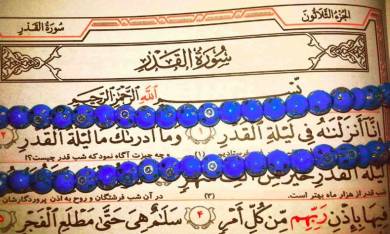 الجزء الثلاثون
سورة القدر
سُورَةُ الْقَدْرِ
بِسْمِ اللهِ الرَّحْمٰنِ الرَّحِيمِ
اِنَّا اَنْزَلْنٰهُ فِي لَيْلَةِ الْقَدْرِ ١ وَمَا اَدْرٰىكَ مَا لَيْلَةُ الْقَدْرِ ٢
(۱) و چه چیزت آگاه نمود که شب قدر چیست؟
لَيْلَةُ الْقَدْرِ خَيْرٌ مِنْ
شب قدر از هزار ماه بهتر است. (۳) در آن شب فرشتگان و روح به اذن پروردگارشان
فِيهَا بِاِذْنِ رَبِّهِمْ مِنْ كُلِّ اَمْرٍ ٤ سَلٰامٌ هِيَ حَتّٰى مَطْلَعِ الْفَجْرِ ٥